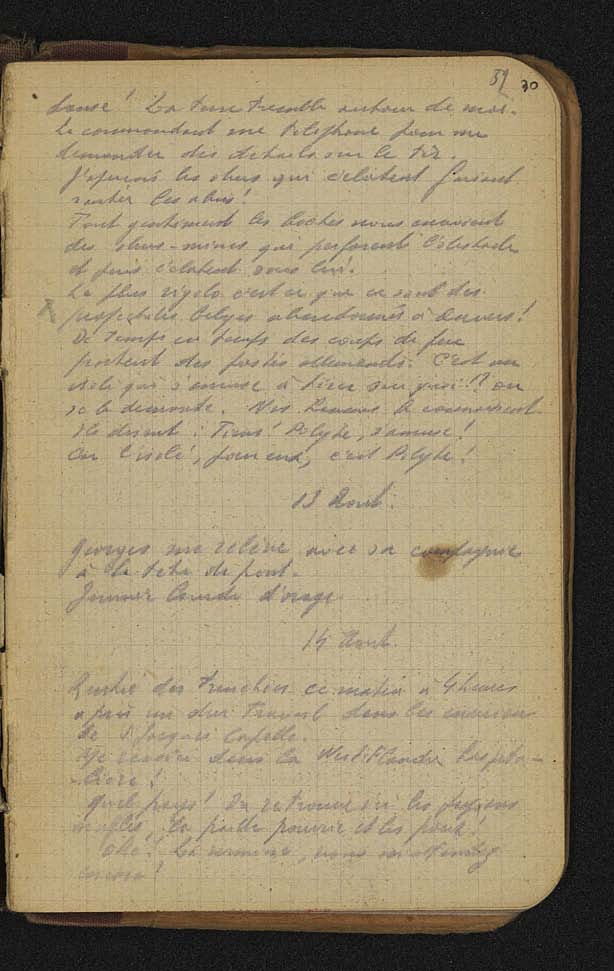 59 30
danse! La terre tremble autour de moi.
Le commandant me téléphone pour me
demander des détails sur le tir.
J'aperçois les obus qui éclatent faisant
sauter les abris!
Tout gentiment les boches nous envoient
des obus-mines qui perforent l'estacade
et puis éclatent sous lui.
Le plus rigolo c'est que ce sont des
projectiles belges abandonnés à Anvers!
De temps en temps des coups de feu
partent des postes allemands. C'est un
isolé qui s'amuse à tirer sur quoi!? on
se le demande. Nos hommes le connaissent
Ils disent: Tiens! Polyte, s'amuse!
Car l'isolé, pour eux, c'est Polyte!
13 Août.
Georges me relève avec sa compagnie
à la tête de pont.
Journée lourde d'orage
14 Août.
Rentré des tranchées ce matin à 4 heures
après un dur travail dans les
de St Jacques Capelle.
dans la West-Flandre hospita-
-lière!
Quel pays! On retrouve ici les
la paille pourrie et les poux!
La vermine, nous
encore!